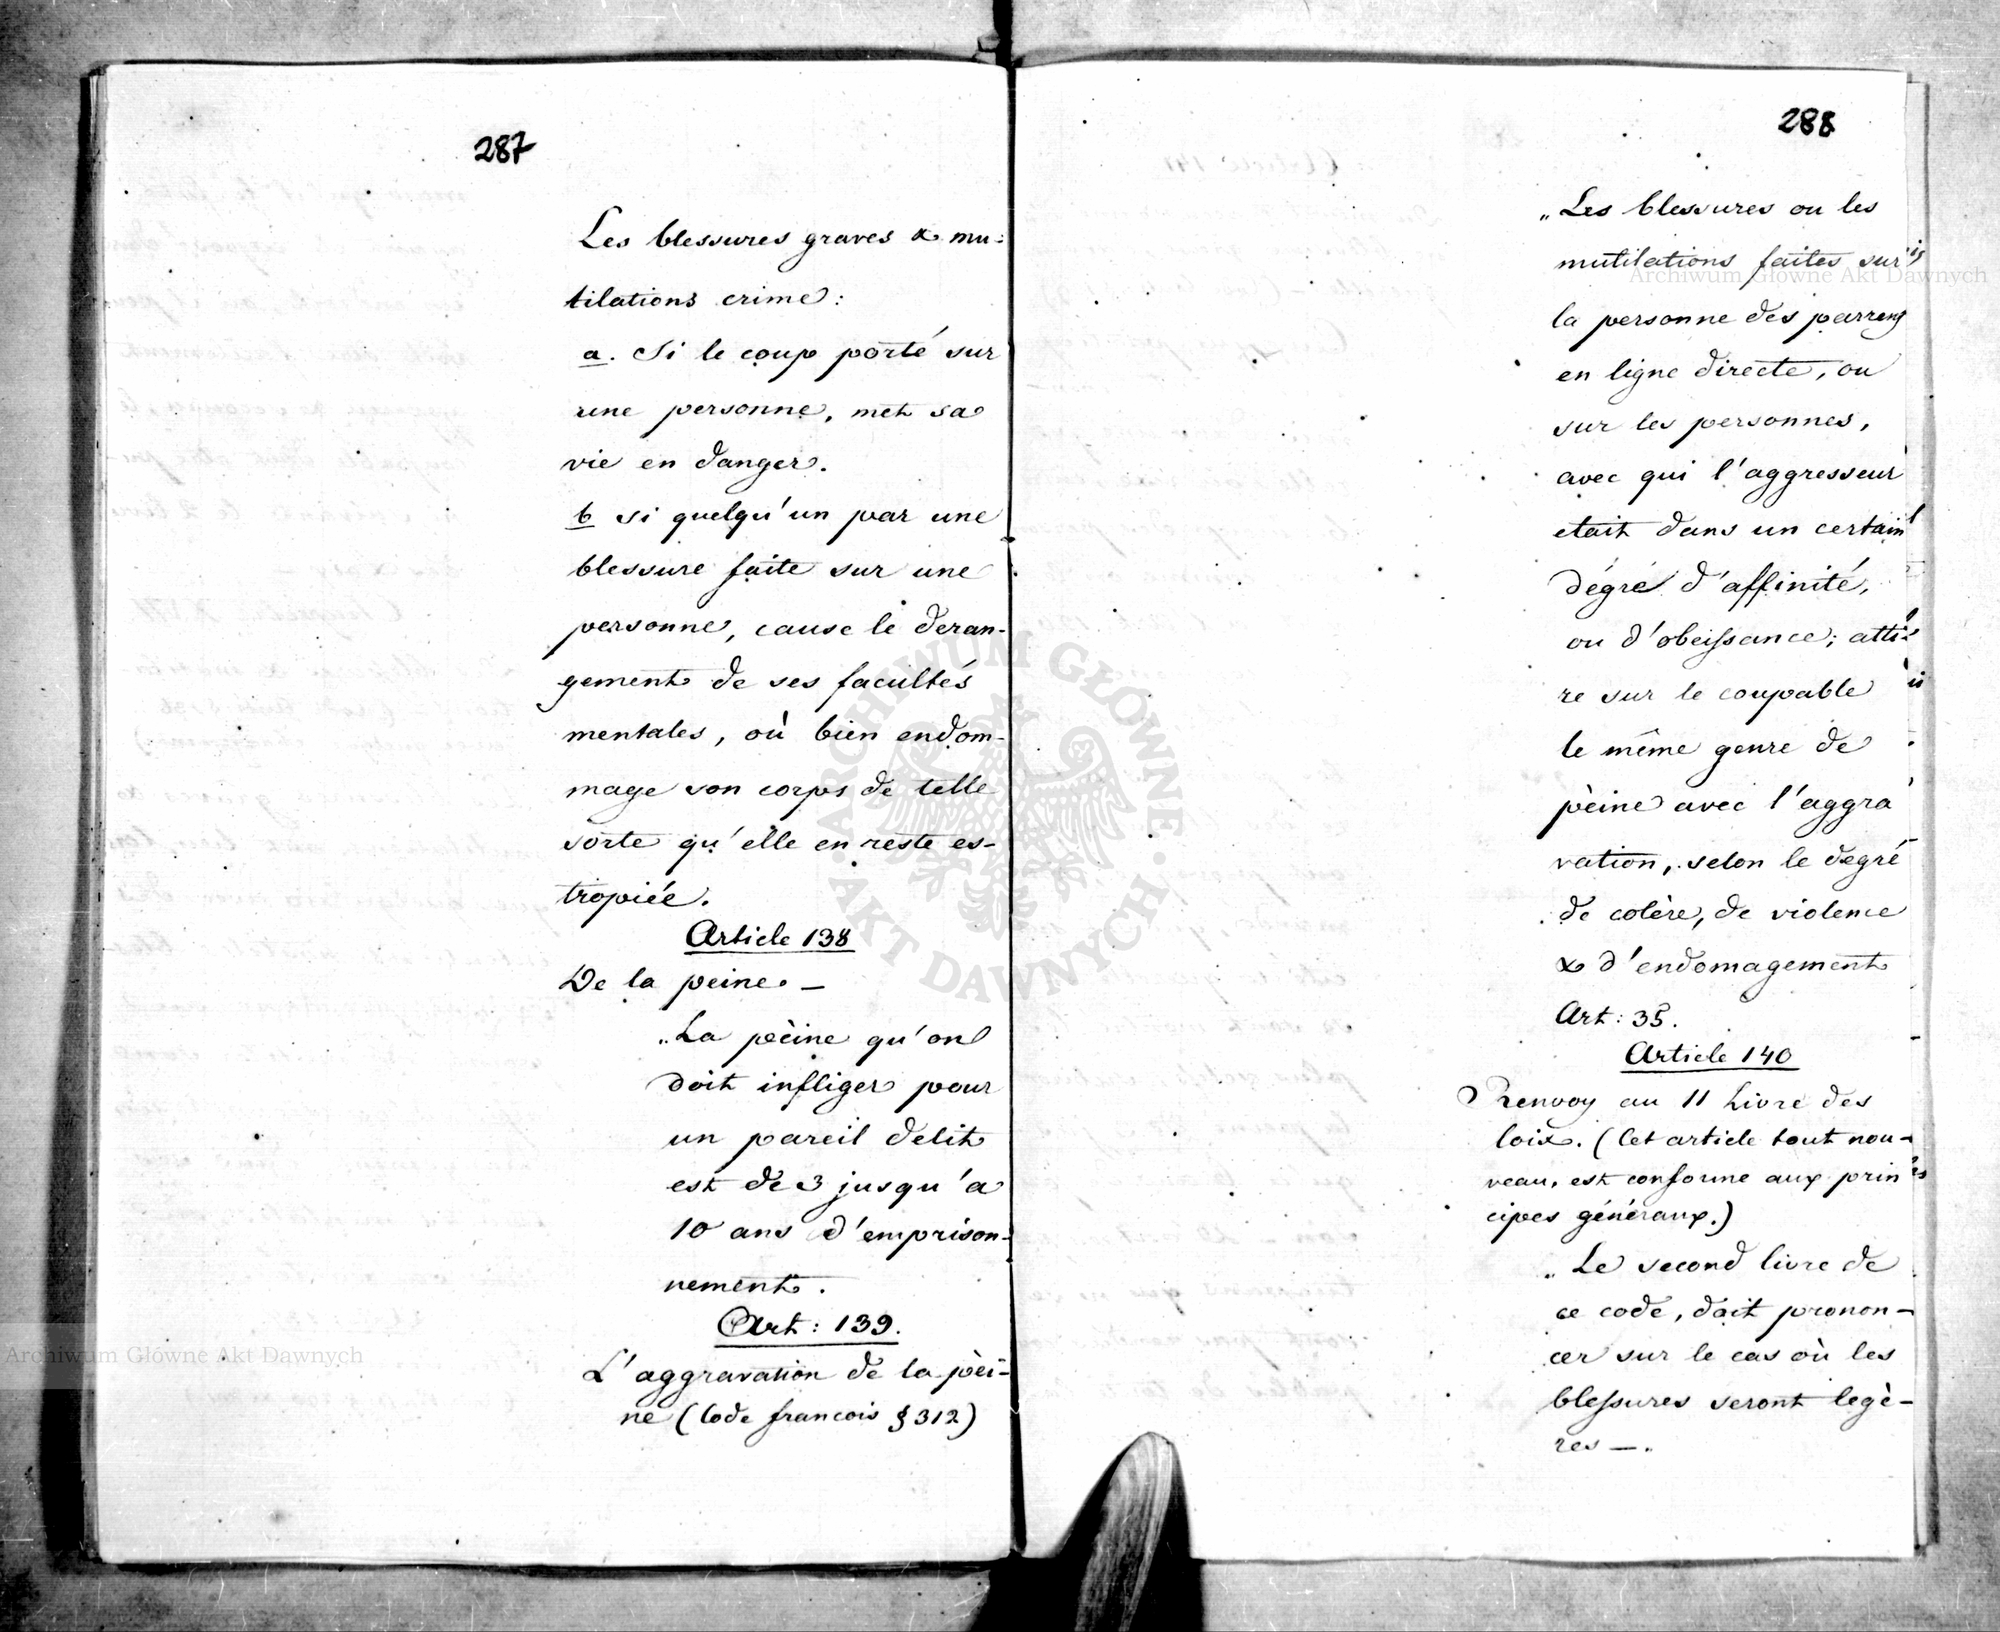 287
Les blessures graves & mu:
tilations crime:
a. Si le coup porté sur
une personne, met sa
vie en danger.
b si quelqu'un par une
blessure faite sur une
personne, cause le deran-
gement de ses facultés
mentales, où bien endom-
mage son corps de telle
sorte qu'elle en reste es-
tropiée.
Article 138
De la peine. —
„La pèine qu'on
doit infliger pour
un pareil delit
est de 3 jusqu'a
10 ans d'emprison-
nement.
Art: 139.
L'aggravation de la pèi-
ne (Code francois § 312)
288
„Les blessures ou les
mutilations faites sur
la personne des parrens
en ligne directe, ou
sur les personnes,
avec qui l'aggresseur
etait dans un certain
dégré d'affinité,
ou d'obeissance; atti-
re sur le coupable
le même genre de
pèine avec l'aggra
vation, selon le degré
de colère, de violence
& d'endomagement
Art: 35.
Article 140
Renvoy au 11 Livre des
loix. (Cet article tout nou-
veau, est conforme aux prin
cipes généraux.)
„Le second livre de
ce code, doit pronon-
cer sur le cas où les
blessures seront legè-
res —.
ARCHIWUM GŁÓWNE
AKT DAWNYCH
Archiwum Główne Akt Dawnych
Archiwum Główne Akt Dawnych